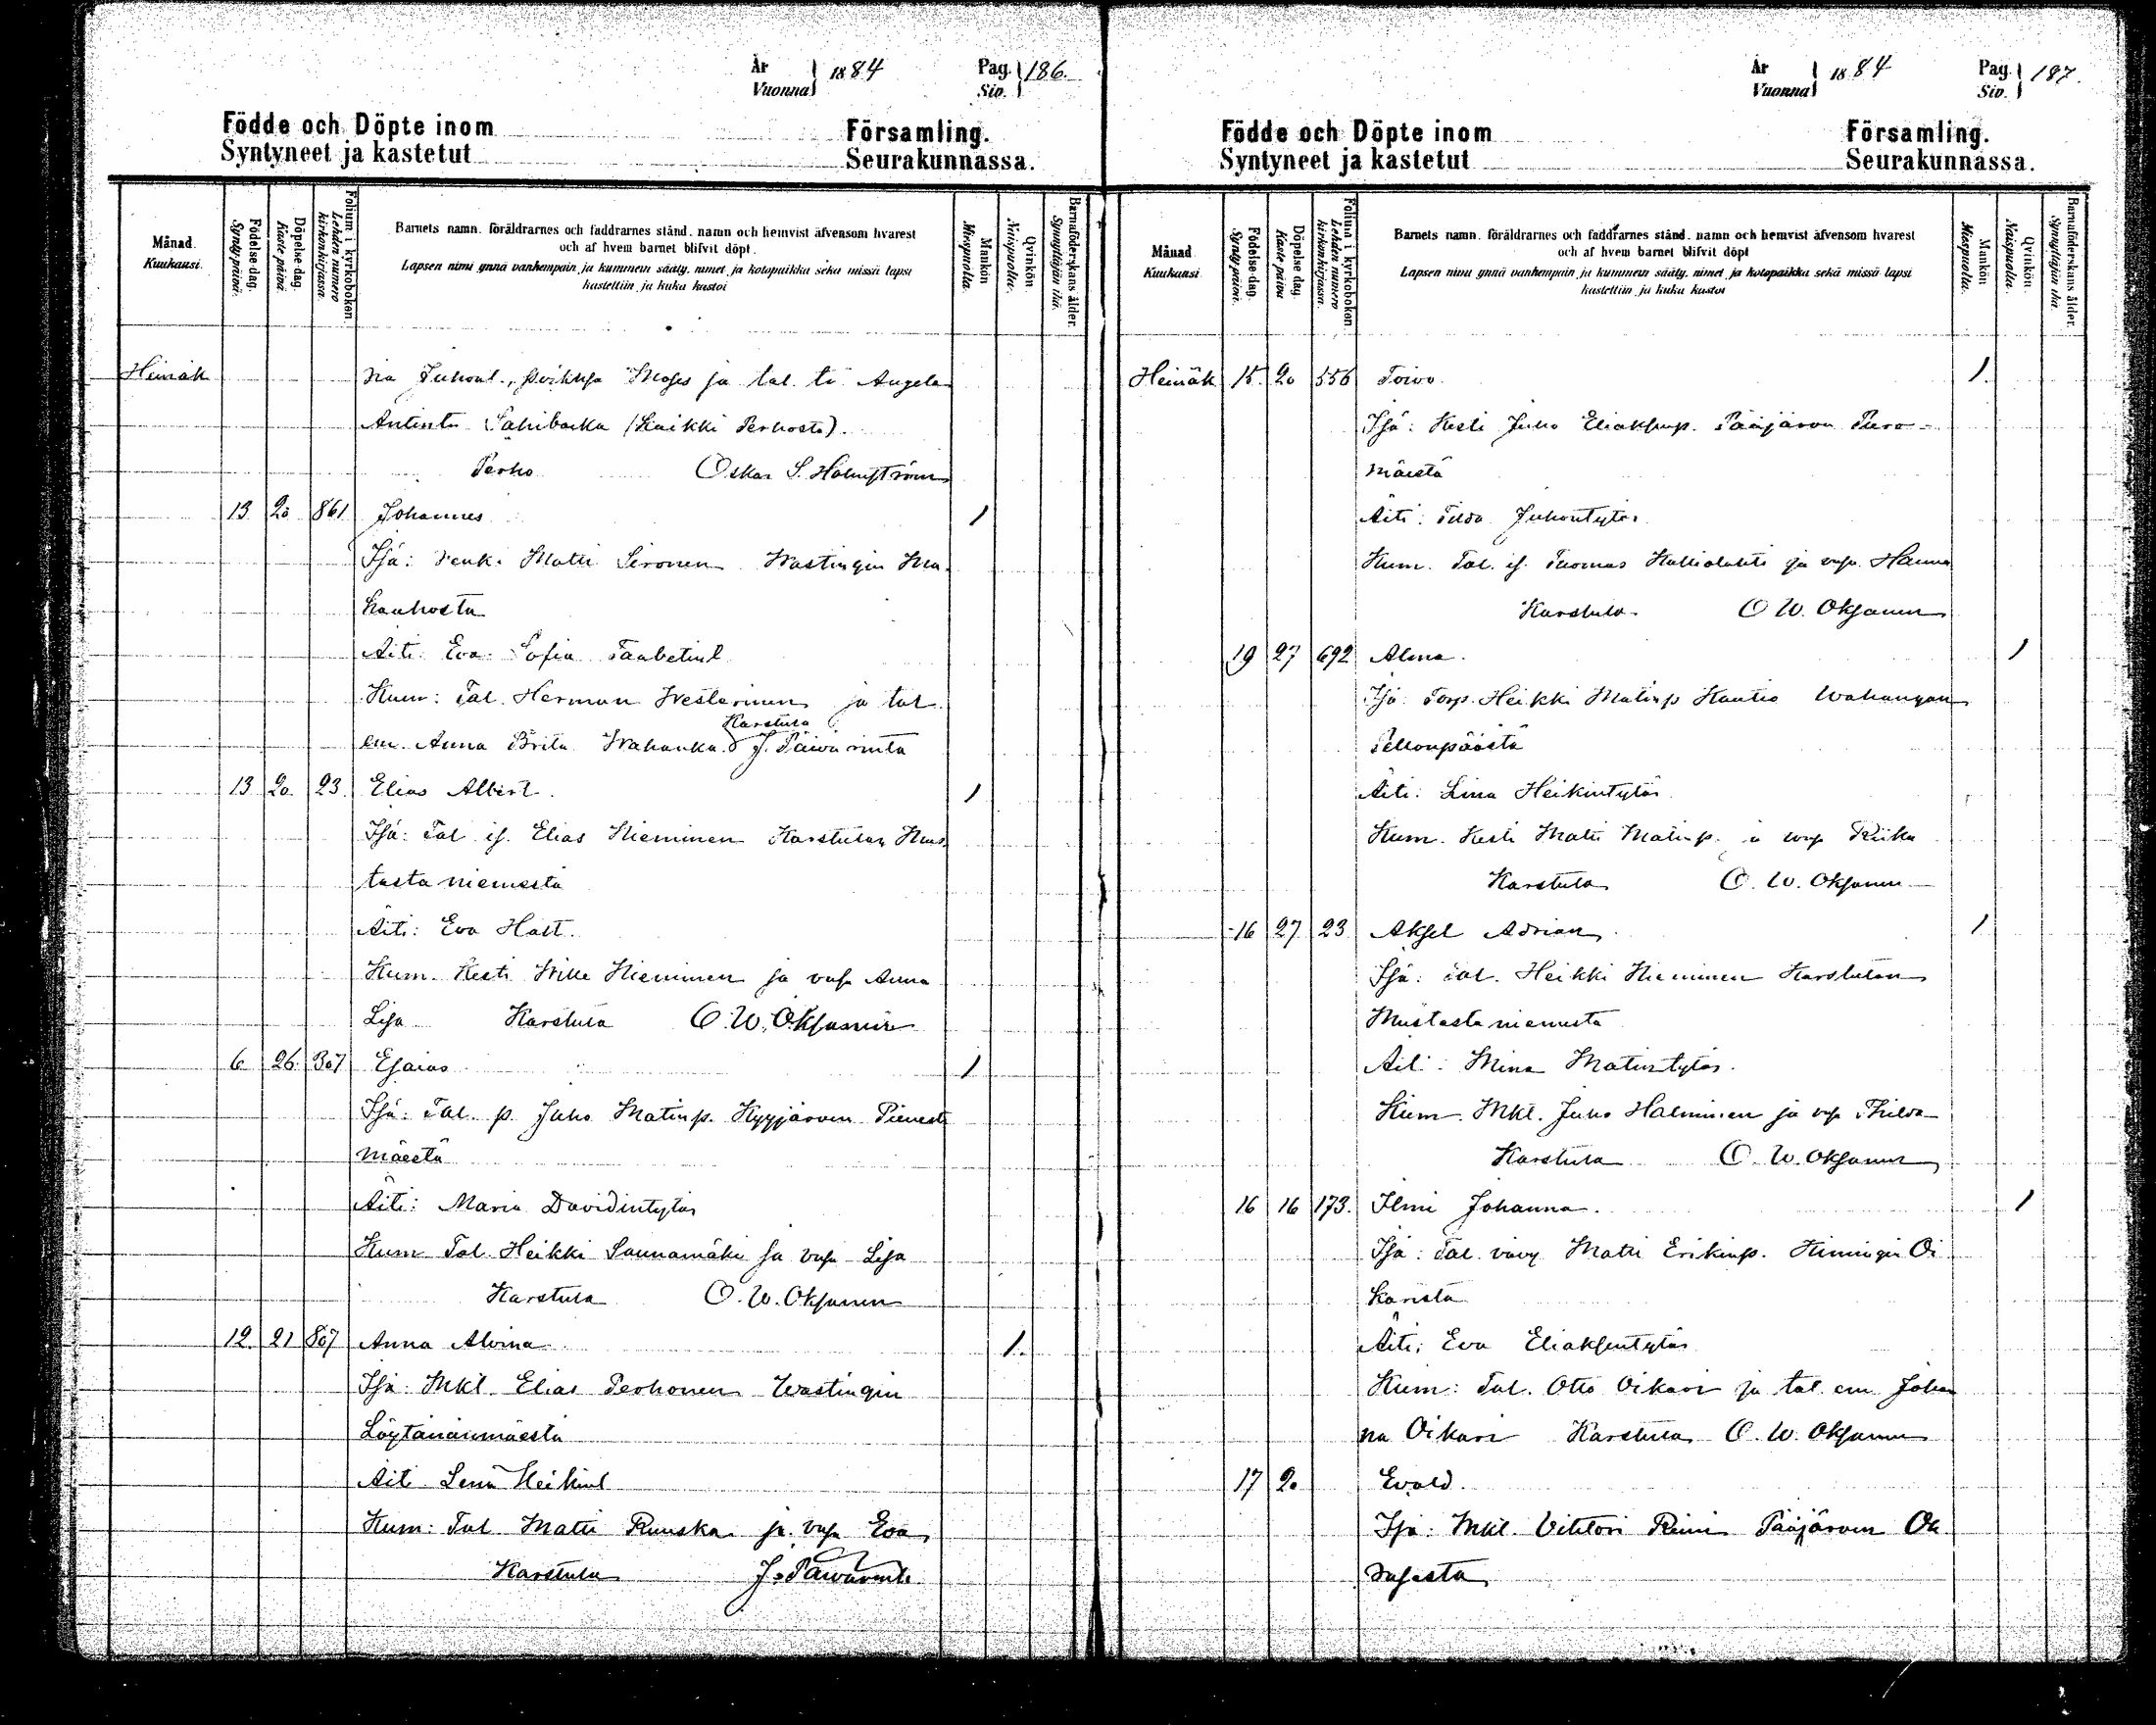 År Vuonna 1884 Pag. Siv. 186.
Födde och Döpte inom Församling.
Syntyneet ja kastetut Seurakunnassa.
Månad. Kuukausi.
Födelse dag. Synty päivä.
Döpelse dag. Kaste päivä
Folium i kyrkoboken. Lehden numero kirkonkirjassa.
Barnets namn. föräldrarnes och faddrarnes stånd. namn och hemvist äfvensom hvarest
och af hvem barnet blifvit döpt.
Lapsen nimi ynnä vanhempain ja kummein sääty. nimet ja kotopaikka sekä missä lapsi
kastettiin ja kuka kastoi
Mankön Miespuolia.
Qvinkön. Naispuolia.
Barnaföderskans ålder. Synnyttäjän ikä.
Heinäk na Juhont., Moses ja tal. ty Angela
Antintr (Kaikki Perhosta).
Perho Oskar S. Holmström
13 20 861 Johannes 1
Isä: renk. Matti Sironen Wastingin
Kauhosta
Äiti: Eva Sofia Taabetint
Kum: Tal. Herman Westerinen ja tal.
em. Anna Brita Wahanka. Karstula J. Päivärinta
13 20. 23. Elias Albert. 1
Isä: Tal. is. Elias Nieminen Karstulan Mus
tasta niemestä
Äiti: Eva Hast.
Kum. Kesti Wille Nieminen ja vaso Anna
Lisa Karstula O. W. Oksanen
6 26. 307 Esaias 1
Isä: Tal. p. Juho Matinp. Kyyjärven
mäestä
Äiti: Maria Davidintytär
Kum Tal. Heikki Saunamäki ja vaso Lisa
Karstula O. W. Oksanen
12. 21 807 Anna Alvina 1.
Isä: Mkl. Elias Perhonen Wastingin
Löytänänmäestä
Äiti Lena Heikint
Kum: Tal Matti Ruuska ja vaso Eva
Karstula J. Päivärinta
År Vuonna 1884 Pag. Siv. 187.
Födde och Döpte inom Församling.
Syntyneet ja kastetut Seurakunnassa.
Månad Kuukausi
Födelse dag. Synty päivä.
Döpelse dag. Kaste päivä
Folium i kyrkoboken Lehden numero kirkonkirjassa.
Barnets namn. föräldrarnes och faddrarnes stånd. namn och hemvist äfvensom hvarest
och af hvem barnet blifvit döpt
Lapsen nimi ynnä vanhempain ja kummein sääty. nimet ja kotopaikka sekä missä lapsi
kastettiin ja kuka kastoi
Mankön Miespuolia.
Qvinkön Naispuolia.
Barnaföderskans ålder. Synnyttäjän ikä.
Heinäk 15. 20 556 Toivo 1.
Isä: Kesti Juho Eliaksenp. Pääjärven
mäestä
Äiti: Tilda Juhontytär
Kum. Tal. is. Tuomas Kalliolahti ja vaso Hanna
Karstula O W. Oksanen
19 27 692 Alma. 1
Isä: Torp. Heikki Matinp Kautio Wahangan
Pellonpäästä
Äiti: Lina Heikintytär
Kum. Kesti Matti Matinp. ja vaso Riika
Karstula O. W. Oksanen
16 27 23 Aksel Adrian 1
Isä: Tal. Heikki Nieminen Karstulan
Mustasta niemestä
Äiti: Mina Matintytär.
Kum. Mkl. Juho Halminen ja vaso Thilda
Karstula O. W. Oksanen
16 16 173. Ilmi Johanna. 1
Isä: Tal. vävy Matti Erikinp. Kiminginn Oi
karista
Äiti: Eva Eliaksentytär
Kum: Tal. Otto Oikari ja tal. em Johan
na Oikari Karstula O. W. Oksanen
17 20 Evald.
Isä: Mkl. Vihtori Pääjärven